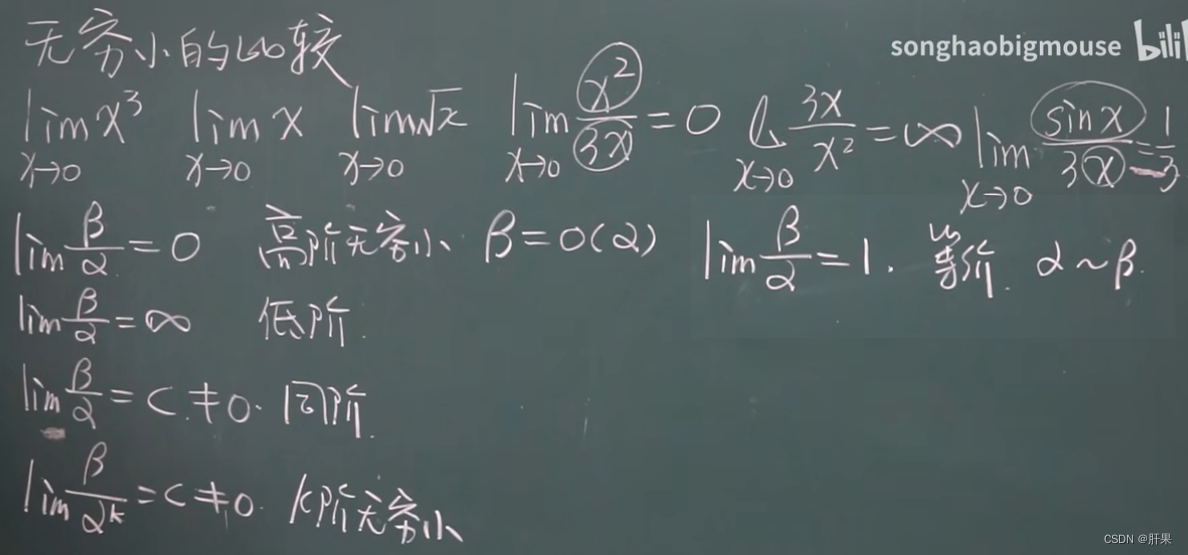 songhaobigmouse bilibili
无穷小的比较
lim x→0 x³  lim x→0 x  lim x→0 √x  lim x→0 x²/3x = 0  lim x→0 3x/x² = ∞  lim x→0 sinx/3x = 1/3
lim β/α = 0 高阶无穷小 β=o(α)  lim β/α = 1. 等阶. α~β.
lim β/α = ∞ 低阶.
lim β/α = C ≠ 0. 同阶.
lim β/αᵏ = C ≠ 0. k阶无穷小
CSDN @肝果